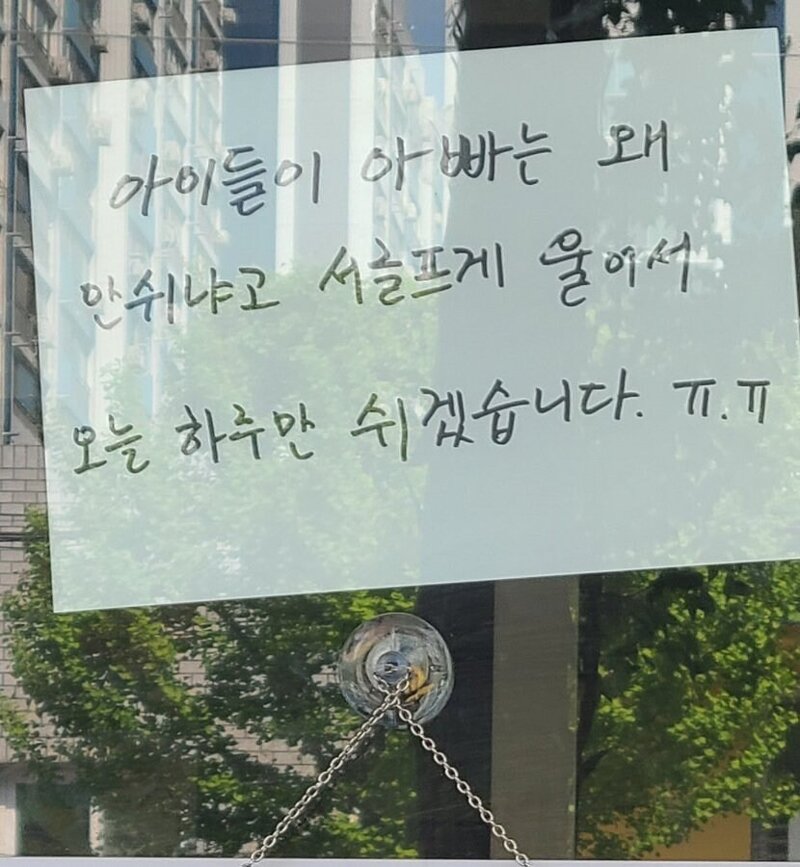 아이들이 아빠는 왜
안쉬냐고 서글프게 울어서
오늘 하루만 쉬겠습니다. ㅠ.ㅠ